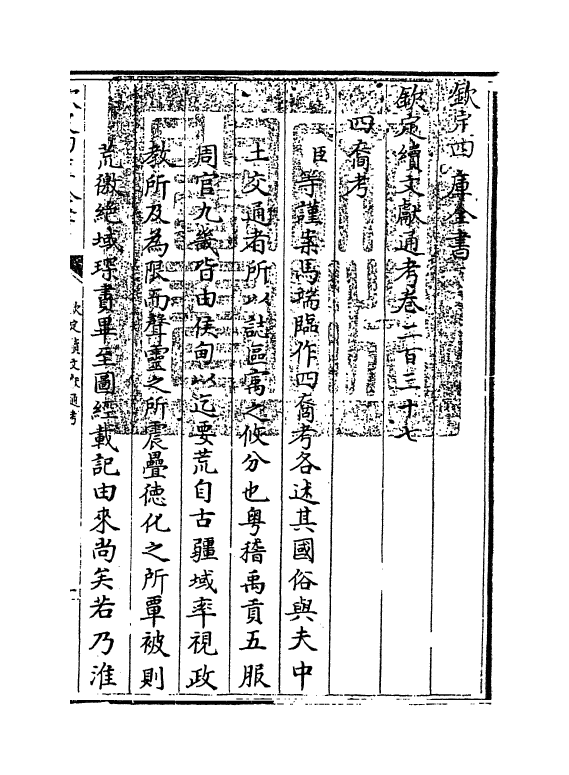 欽定四庫全書
欽定續文獻通考卷二百三十七
四裔考
臣等謹案馬端臨作四裔考各述其國俗與夫中
土交通者所以誌區寓之攸分也粵稽禹貢五服
周官九畿皆由侯甸以迄要荒自古疆域率視政
教所及為限而聲靈之所震疊德化之所覃被則
荒徼絶域琛賮畢至圖經載記由來尚矣若乃淮
欽定續文獻通考